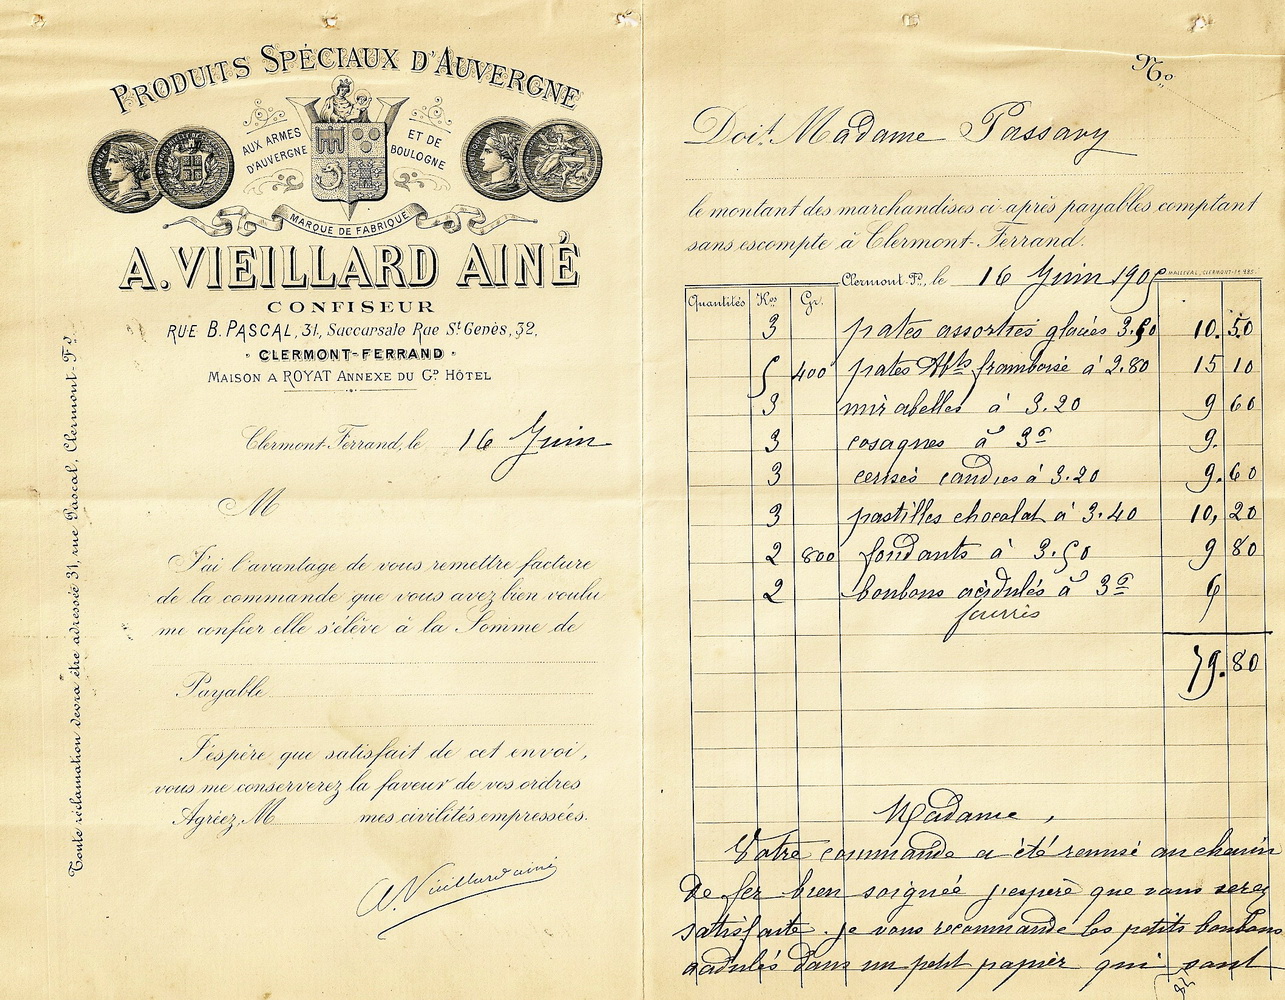 PRODUITS SPÉCIAUX D'AUVERGNE
AUX ARMES D'AUVERGNE
ET DE BOULOGNE
MARQUE DE FABRIQUE
A. VIEILLARD AINÉ
CONFISEUR
RUE B. PASCAL, 31, Succursale Rue St Genès, 32,
CLERMONT-FERRAND
MAISON A ROYAT ANNEXE DU GD HÔTEL
Clermont-Ferrand, le 16 Juin
M
J'ai l'avantage de vous remettre facture
de la commande que vous avez bien voulu
me confier elle s'élève à la Somme de
Payable
J'espère que satisfait de cet envoi,
vous me conserverez la faveur de vos ordres
Agréez, M mes civilités empressées.
A. Vieillard ainé
Toute réclamation devra être adressée 31, rue Pascal, Clermont-Fd.
No
Doit Madame Passavy
le montant des marchandises ci-après payables comptant
sans escompte à Clermont-Ferrand.
Clermont-Fd, le 16 Juin 1905
MALLEVAL, CLERMONT-Fd
Quantités Kos Gr.
3 pates assorties glacés 3.50 10.50
5 400 pates framboise à 2.80 15 10
3 mirabelles à 3.20 9 60
3 cosaques à 3 9.
3 cerises candies à 3.20 9.60
3 pastilles chocolat à 3.40 10,20
2 800 fondants à 3.50 9 80
2 bonbons acidulés à 3 6
fourrés
79.80
Madame,
Votre commande a été remise au chemin
de fer bien soignée j'espère que vous serez
satisfaite. je vous recommande les petits bonbons
acidulés dans un petit papier qui sont